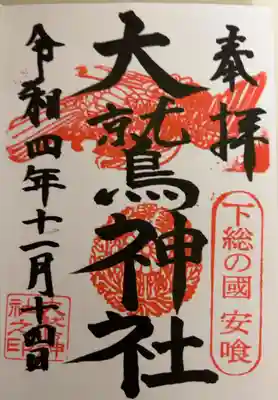 奉拝
下総の國 安喰
大鷲神社
令和四年十一月十四日
大鷲神
社之印